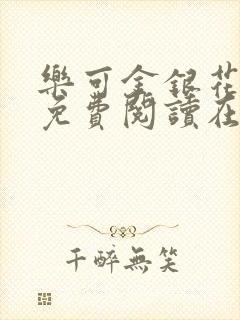 樂可金銀花
免費閱讀在
千醉無笑